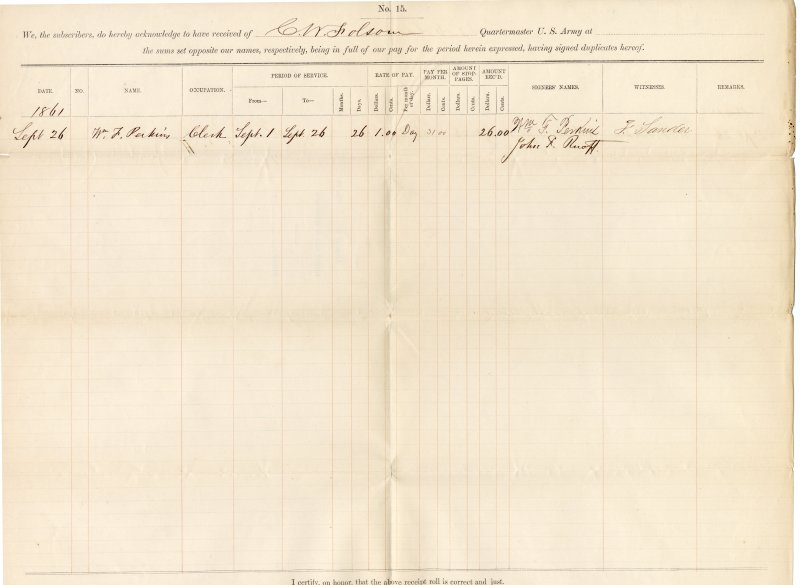 No. 15.
We, the subscribers, do hereby acknowledge to have received of C. W. Folsom Quartermaster U. S. Army at
the sums set opposite our names, respectively, being in full of our pay for the period herein expressed, having signed duplicates hereof.
DATE. NO. NAME. OCCUPATION. PERIOD OF SERVICE. From— To— Months. Days. RATE OF PAY. Dollars. Cents. Per month or day. PAY PER MONTH. Dollars. Cents. AMOUNT OF STOPPAGES. Dollars. Cents. AMOUNT REC'D. Dollars. Cents. SIGNERS' NAMES. WITNESSES. REMARKS.
1861
Sept 26 Wm. F. Perkins Clerk Sept. 1 Sept. 26 26 1.00 Day 31 00 26.00 Wm. F. Perkins
John F.
I certify, on honor, that the above receipt roll is correct and just.